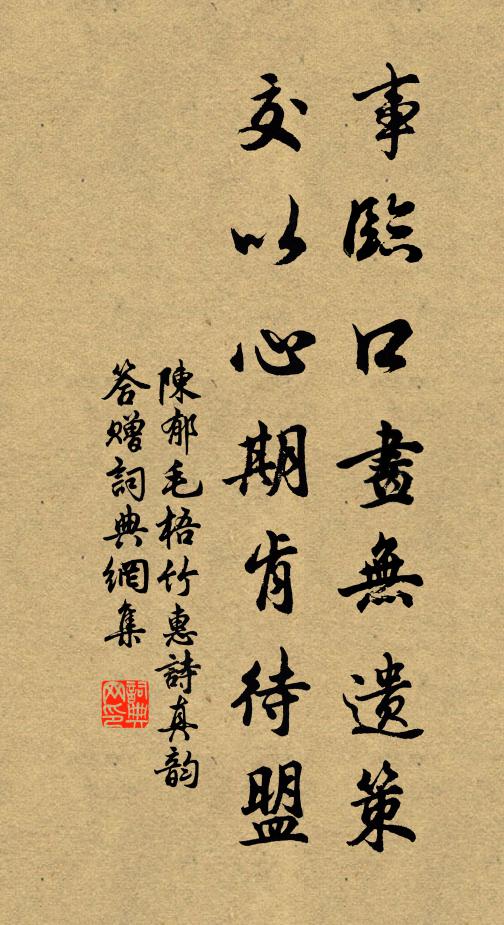 事臨口畫無遺策
交以心期肯待盟
陳郁毛梧竹惠詩真韵
答贈詞典網集
詞典网印